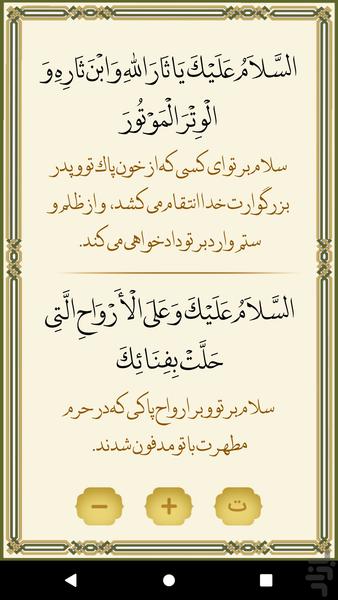 السَّلاَمُ عَلَيْكَ يَا ثَارَ اللهِ وَ ابْنَ ثَارِهِ وَ
الْوِتْرَ الْمَوْتُورَ
سلام بر تو ای کسی که از خون پاک تو و پدر
بزرگوارت خدا انتقام می کشد، و از ظلم و
ستم وارد بر تو دادخواهی می کند.
السَّلاَمُ عَلَيْكَ وَ عَلَى الْأَرْوَاحِ الَّتِي
حَلَّتْ بِفِنَائِكَ
سلام بر تو و بر ارواح پاکی که در حرم
مطهرت با تو مدفون شدند.
− + ت
بازار